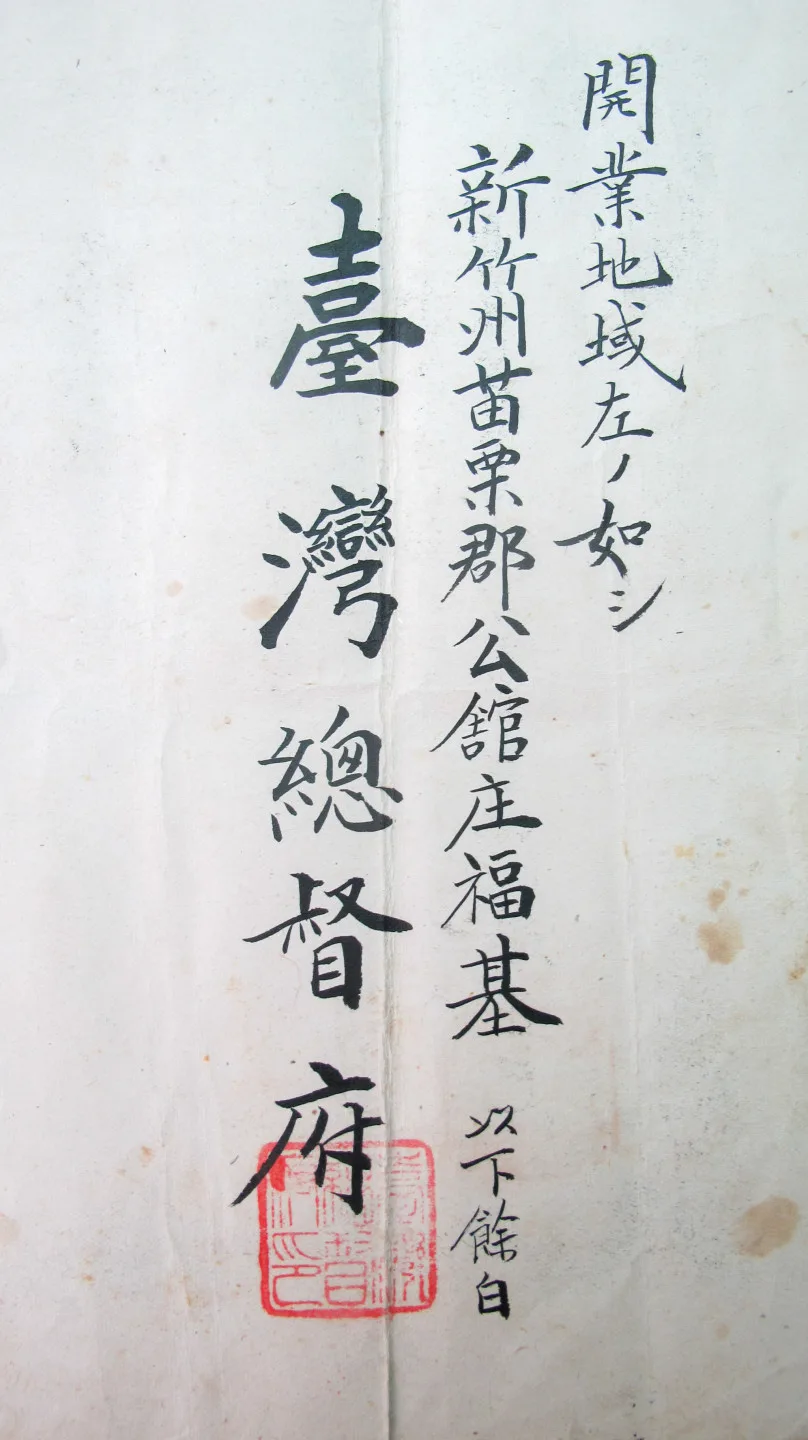 開業地域左ノ如シ
新竹州苗栗郡公舘庄福基 以下餘白
臺灣總督府